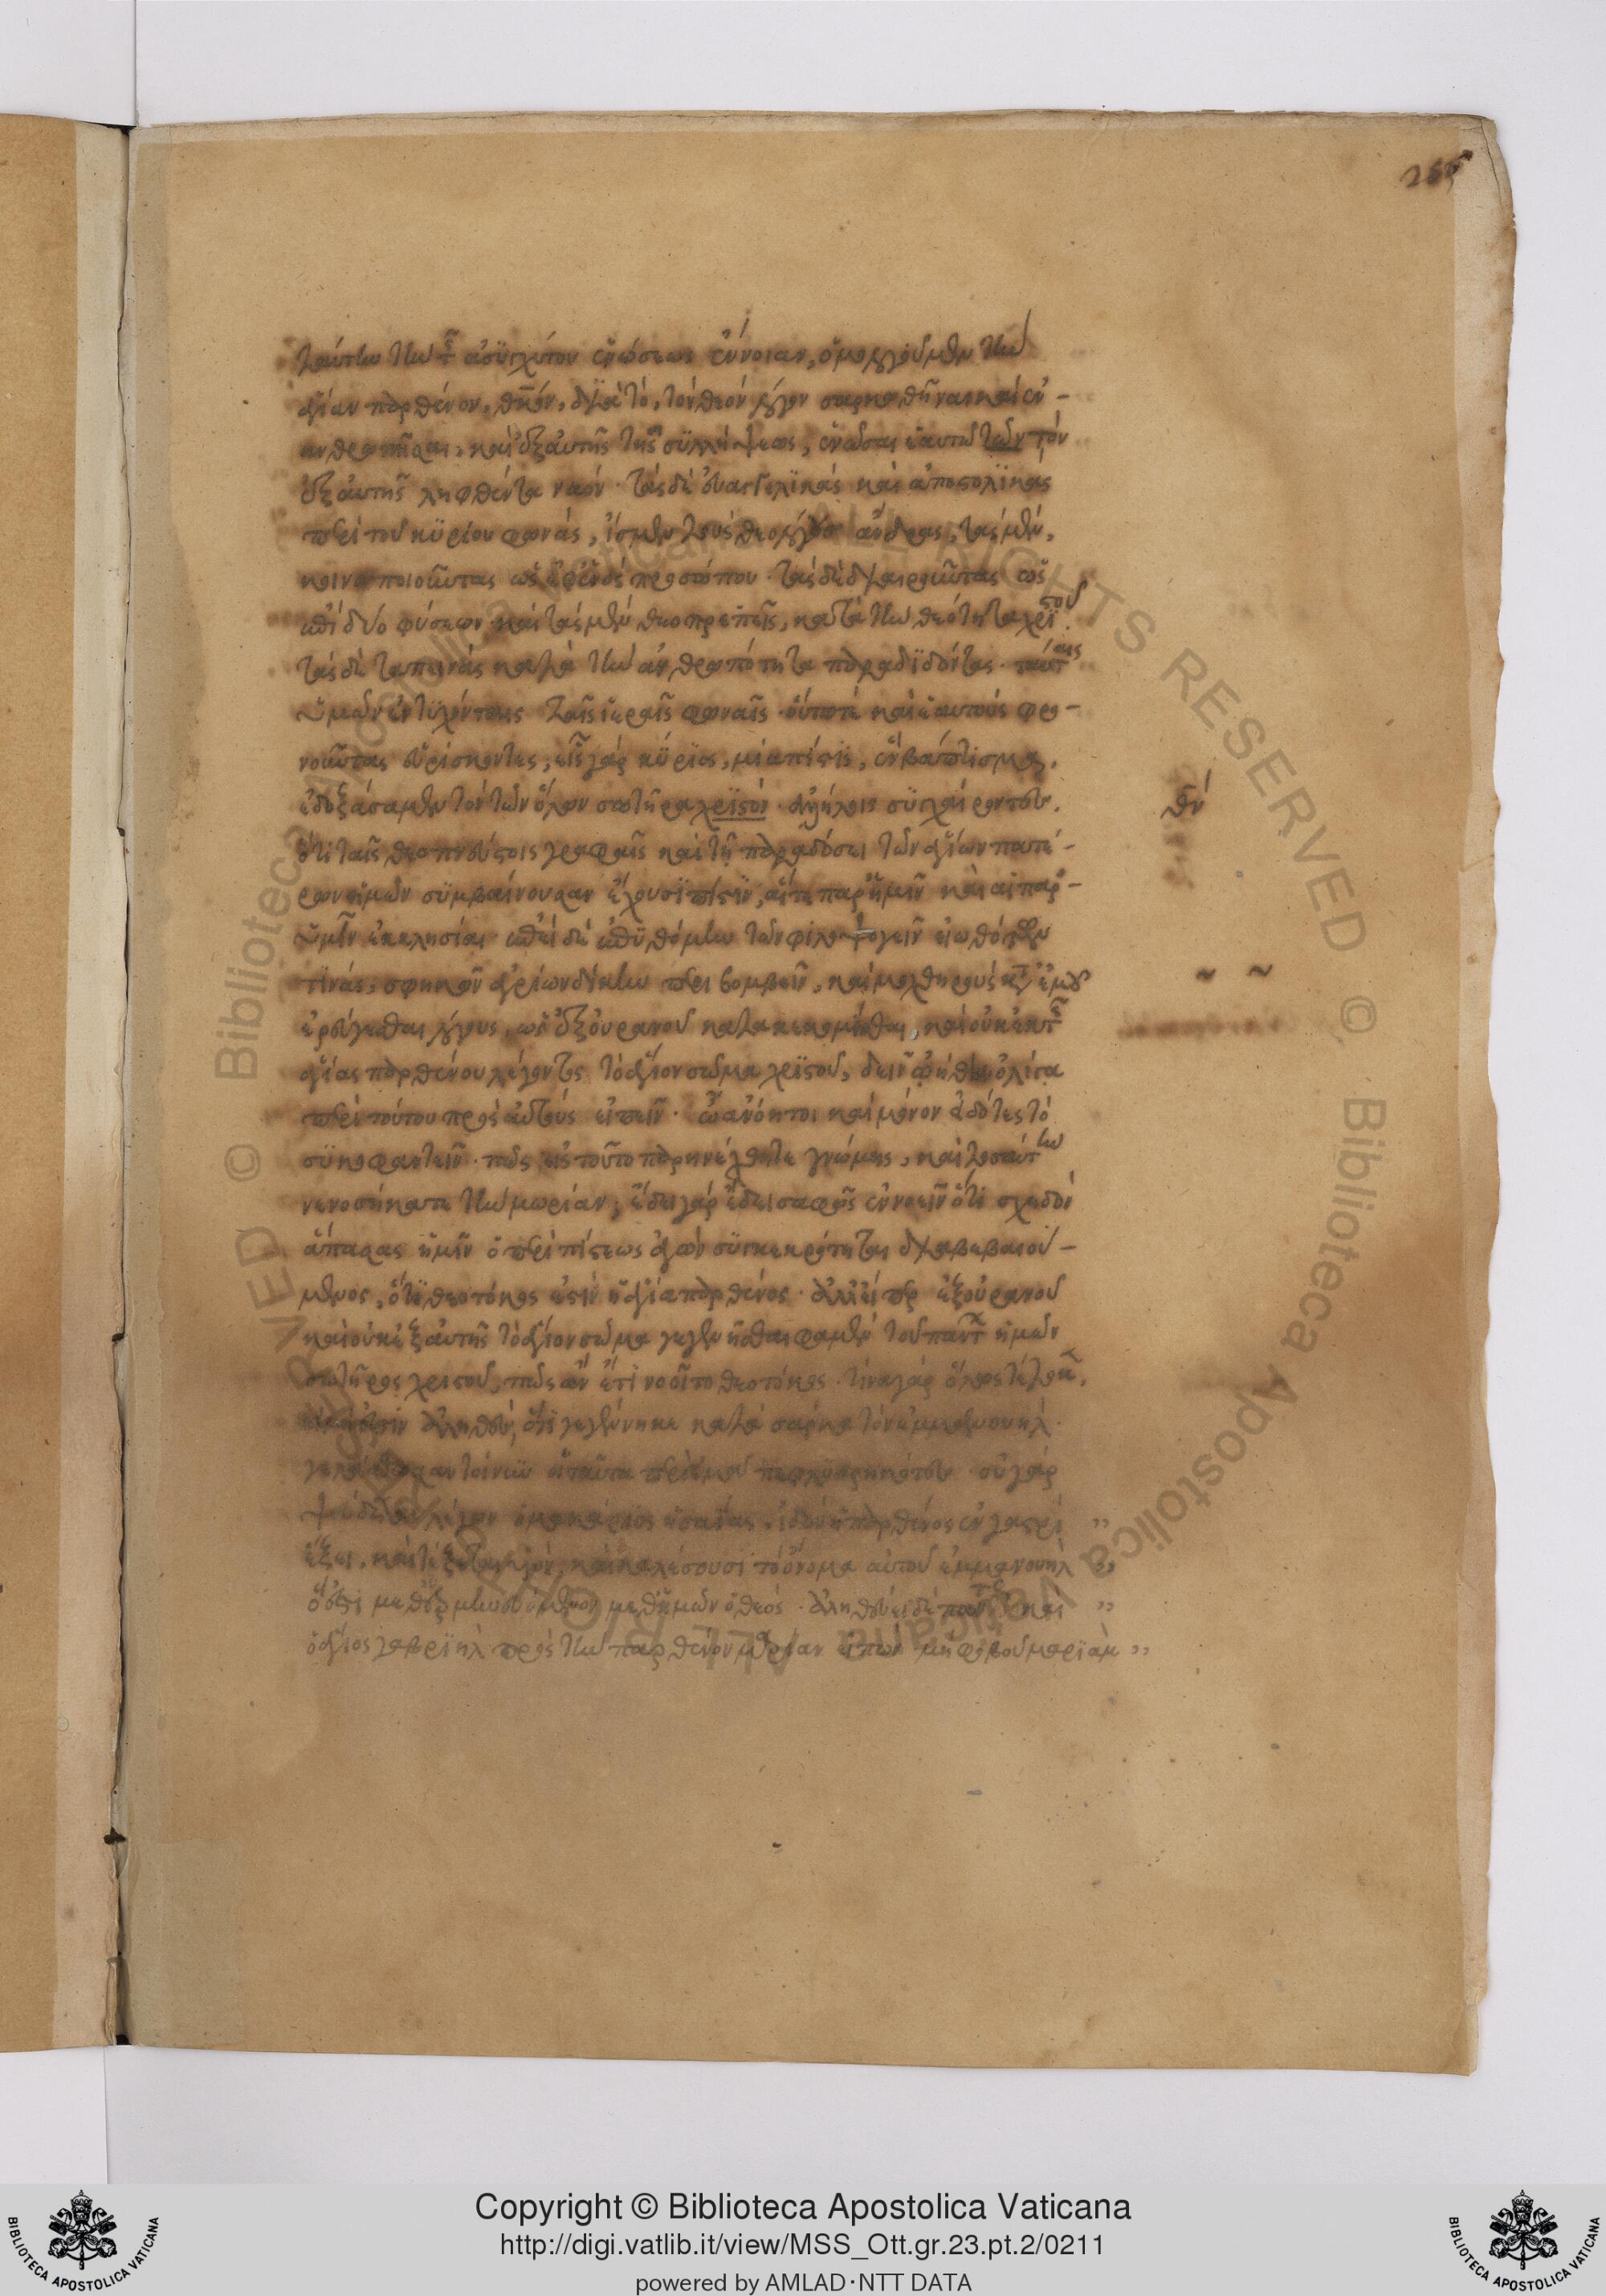 255
ταύτην τὴν τῆς ἀσυγχύτου ἑνώσεως ἔννοιαν, ὁμολογοῦμεν τὴν
ἁγίαν παρθένον, θ̅κ̅ον, διὰ τὸ, τὸν θεὸν λόγον σαρκωθῆναι καὶ ἐν-
ανθρωπῆσαι, καὶ ἐξ αὐτῆς τῆς συλλήψεως, ἑνῶσαι ἑαυτῶ τὸν
ἐξ αὐτῆς ληφθέντα ναόν· τὰς δὲ εὐαγγελικὰς καὶ ἀποστολικὰς
περὶ τοῦ κυρίου φωνάς, ἴσμεν τοὺς θεολόγους ἄνδρας, τὰς μὲν,
κοινοποιοῦντας ὡς ἐφ' ἑνὸς προσώπου· τὰς δὲ διαιροῦντας ὡς
ἐπὶ δύο φύσεων· καὶ τὰς μὲν θεοπρεπεῖς, κατὰ τὴν θεότητα χριστοῦ·
τὰς δὲ ταπεινὰς κατὰ τὴν ἀνθρωπότητα παραδιδόντας· ταύταις
ὑμῶν ἐντυχόντες ταῖς ἱεραῖς φωναῖς· οὕτω τε καὶ ἑαυτοὺς φρο-
νοῦντας εὑρίσκοντες, εἷς γὰρ κύριος, μία πίστις, ἓν βάπτισμα,
ἐδοξάσαμεν τὸν τῶν ὅλων σωτῆρα χριστὸν· ἀλλήλοις συγχαίροντες,
θν
ὅτι ταῖς θεοπνεύστοις γραφαῖς καὶ τῇ παραδόσει τῶν ἁγίων πατέ-
ρων ἡμῶν συμβαίνουσαν ἔχουσι πίστιν, αἵ τε παρ' ἡμῖν καὶ αἱ παρ'
ὑμῖν ἐκκλησίαι· ἐπεὶ δὲ ἐπυθόμην τῶν φιλοψογεῖν εἰωθότων
τινὰς, σφηκῶν ἀγρίων δίκην περιβομβεῖν, καὶ μοχθηροὺς κατ' ἐμοῦ
ἐρεύγεσθαι λόγους, ὡς ἐξ οὐρανοῦ κατακεκομίσθαι, καὶ οὐκ ἐκ τῆς
ἁγίας παρθένου λέγοντος τὸ ἅγιον σῶμα χριστοῦ, δεῖν ᾠήθην ὀλίγα
περὶ τούτου πρὸς αὐτοὺς εἰπεῖν· ὦ ἀνόητοι καὶ μόνον εἰδότες τὸ
συκοφαντεῖν· πῶς εἰς τοῦτο παρηνέχθητε γνώμης, καὶ τοσαύτην
νενοσήκατε τὴν μωρίαν; ἔδει γὰρ ἔδει σαφῶς ἐννοεῖν ὅτι σχεδὸν
ἅπας ἡμῖν ὁ περὶ πίστεως ἀγὼν συγκεκρότηται διαβεβαιου-
μένοις, ὅτι θεοτόκος ἐστὶν ἡ ἁγία παρθένος· ἀλλ' εἴπερ ἐξ οὐρανοῦ
καὶ οὐκ ἐξ αὐτῆς τὸ ἅγιον σῶμα γεγενῆσθαι φαμὲν τοῦ πάντων ἡμῶν
σωτῆρος χριστοῦ, πῶς ἂν ἔτι νοοῖτο θεοτόκος· τίνα γὰρ ὅλως τέτοκεν,
εἰ μή ἐστιν ἀληθὲς, ὅτι γεγέννηκε κατὰ σάρκα τὸν ἐμμανουὴλ·
γελάσθωσαν τοίνυν οἱ ταῦτα περὶ ἐμοῦ πεφλυαρηκότες· οὐ γὰρ
ψεύδεται λέγων ὁ μακάριος ἡσαΐας· ἰδοὺ ἡ παρθένος ἐν γαστρὶ ,,
ἕξει, καὶ τέξεται υἱὸν, καὶ καλέσουσι τὸ ὄνομα αὐτοῦ ἐμμανουὴλ ,,
ὅ ἐστι μεθερμηνευόμενον μεθ' ἡμῶν ὁ θεός· ἀληθεύει δὲ πάντως καὶ ,,
ὁ ἅγιος γαβριὴλ πρὸς τὴν παρθένον μαρίαν εἰπὼν μὴ φοβοῦ μαριὰμ ,,
Copyright © Biblioteca Apostolica Vaticana
http://digi.vatlib.it/view/MSS_Ott.gr.23.pt.2/0211
powered by AMLAD·NTT DATA